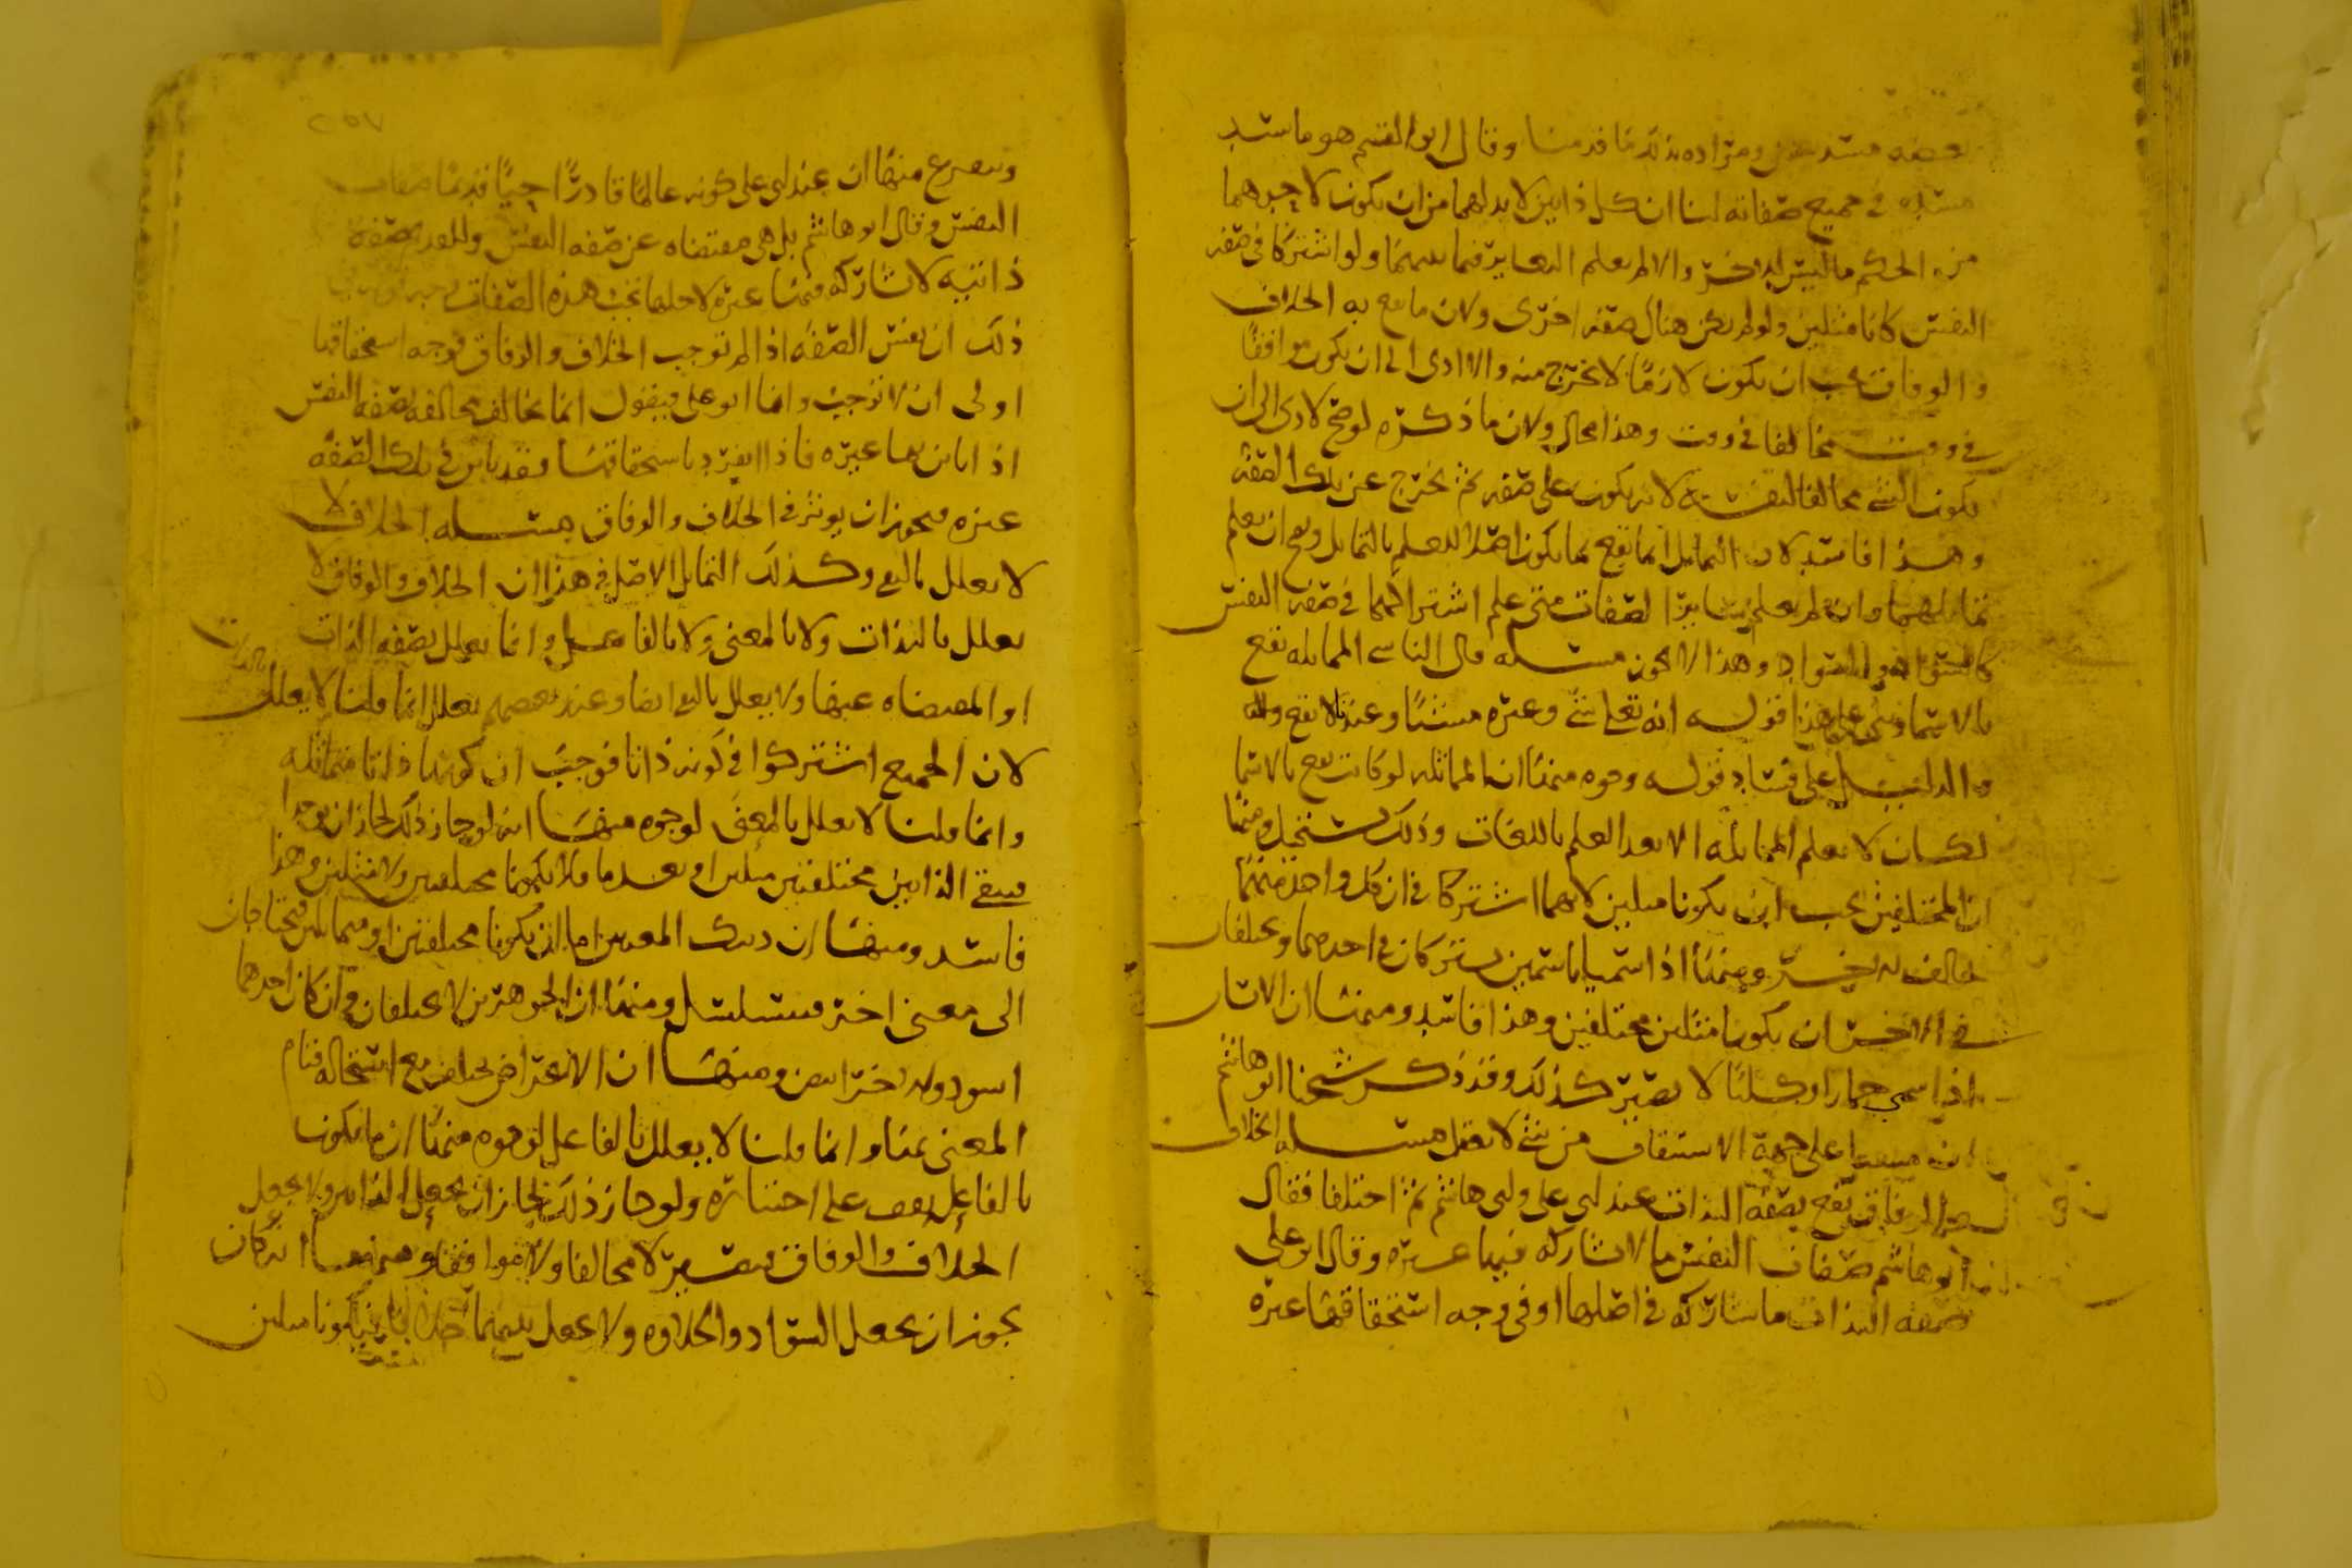 ومراده بذلك ما قدمنا وقال ابو القسم هو ما ستد
مستده في جميع صفاته لنا ان كل ذاتين لا بد لهما من ان يكون لاحدهما
من الحكم ما ليس للاخر والا لم يعلم التغاير فيما بينهما ولو اشتركا في صفه
النفس كانا مثلين ولو لم يكن هناك صفه اخرى ولان ما يقع به الخلاف
والوفاق يجب ان يكون لازما لا يخرج منه والا ادى الى ان يكون موافقا
في وقت مخالفا في وقت وهذا محال ولان ما ذكره لو صح لادى الى ان
يكون الشي مخالفا لنفسه لانه يكون على صفه ثم يخرج عن تلك الصفه
وهذا فاسد لان التماثل انما يقع بما يكون اصلا للعلم بالتماثل ويصح ان يعلم
تماثلهما وان لم يعلم سائر الصفات متى علم اشتراكهما في صفه النفس
كالسواد والسواد وهذا لا يكون مسله قال الناسي المماثله تقع
بالاسما وبنى على هذا قوله انه تعلى شي وغيره مشيا وعندنا لا يقع
والدليل على فساد قوله وجوه منها ان المماثله لو كانت تقع بالاسما
لكان لا يعلم المماثله الا بعد العلم باللغات وذلك يستحيل ومنها
ان المختلفين يجب ان يكونا مثلين لانهما اشتركا في ان كل واحد منهما
مخالف للاخر ومنها اذا سميا باسمين يشتركان في احدهما ويختلفان
في الاخر ان يكونا مثلين مختلفين وهذا فاسد ومنها ان الانسان
اذا سمي حمارا وكلبا لا يصير كذلك وقد ذكر شيخنا ابو هاشم
ان على جهة الاشتقاق من شي لا يعقل مسله الخلاف
والوفاق يقع بصفه الذات عند ابي علي وابي هاشم ثم اختلفا فقال
ابو هاشم صفات النفس ما لا يشاركه فيها غيره وقال ابو علي
صفه الذات ما يشاركه في اصلها او في وجه استحقاقها غيره
٢٥٧
ويتفرع منها ان عند ابي علي كونه عالما قادرا حيا قديما صفات
النفس وقال ابو هاشم بل هي مقتضاه عن صفه النفس وللقديم صفه
ذاتيه لا يشاركه فيها غيره لاجلها تجب هذه الصفات
ذلك ان نفس الصفه اذا لم توجب الخلاف والوفاق فوجه استحقاقها
اولى ان لا توجب واما ابو علي فيقول انما يخالف مخالفه بصفه النفس
اذا باين بها غيره فاذا انفرد باستحقاقها فقد باين في تلك الصفه
غيره فيجوز ان يوثر في الخلاف والوفاق مسله الخلاف لا
لا يعلل بالنفي وكذلك التماثل الاصل في هذا ان الخلاف والوفاق لا
يعلل بالذات ولا بالمعنى ولا بالفاعل وانما يعلل بصفه الذات
او المقتضاه عنها ولا يعلل بالنفي ايضا وعند بعضهم يعلل انما قلنا لا يعلل بالذات
لان الجميع اشتركوا في كونه ذاتا فوجب ان كونها ذاتا متماثله
وانما قلنا لا يعلل بالمعنى لوجوه منها انه لو جاز ذلك لجاز ان يوجدا
فيبقى الذاتين مختلفين مثلين او يعدما فلا يكونا مختلفين ولا مثلين وهذا
فاسد ومنها ان ذينك المعنيين اما ان يكونا مختلفين او متماثلين فيحتاجان
الى معنى اخر فيتسلسل ومنها ان الجوهرين لا يختلفان وان كان احدهما
اسود والاخر ابيض ومنها ان الاعراض تختلف مع استحالة قيام
المعنى بها وانما قلنا لا يعلل بالفاعل لوجوه منها ان ما يكون
بالفاعل يقف على اختياره ولو جاز ذلك لجاز ان يجعل الذاتين ولا يجعل
الخلاف والوفاق فيصير لا مخالفا ولا موافقا ومنها انه كان
يجوز ان يجعل السواد والحلاوه ولا يجعل بينهما خلافا فيكونا مثلين